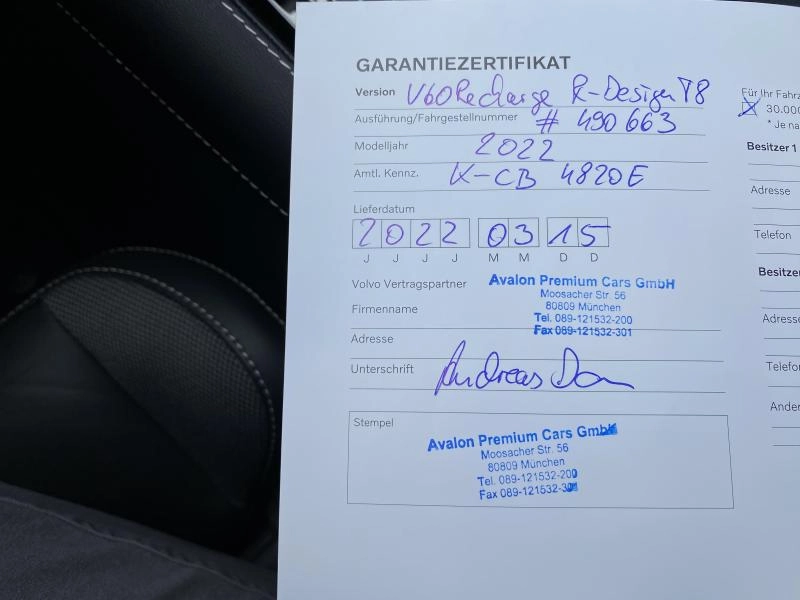 GARANTIEZERTIFIKAT
Version V60 Recharge R-Design T8
Ausführung/Fahrgestellnummer # 490 663
Modelljahr 2022
Amtl. Kennz. K-CB 4820E
Lieferdatum
2 0 2 2 0 3 1 5
J J J J M M D D
Volvo Vertragspartner
Avalon Premium Cars GmbH
Moosacher Str. 56
80809 München
Firmenname
Tel. 089-121532-200
Fax 089-121532-301
Adresse
Unterschrift Andreas
Stempel
Avalon Premium Cars GmbH
Moosacher Str. 56
80809 München
Tel. 089-121532-200
Fax 089-121532-301
Für Ihr Fahrz
30.000
* Je na
Besitzer 1
Adresse
Telefon
Besitzer
Adresse
Telefon
Ander